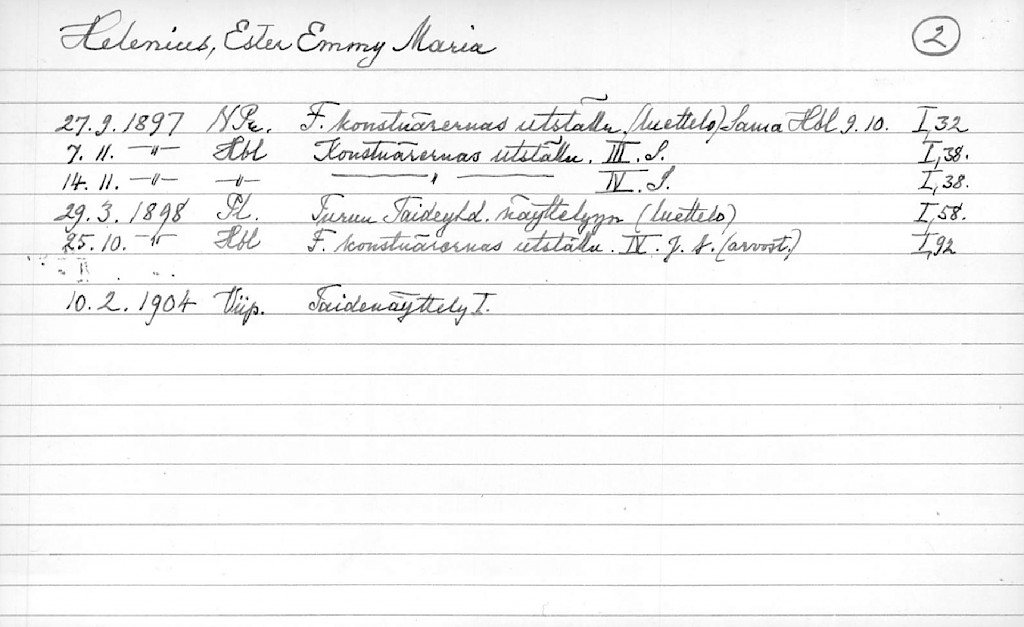 Helenius, Ester Emmy Maria 2
27.9.1897 NPr. F. konstnärernas utställn. (luettelo) Sama Hbl 9.10. I,32
7. 11. —"— Hbl Konstnärernas utställn. III. S. I,38.
14. 11. —"— —"— ——— " ——— IV. S. I,38.
29. 3. 1898 Pl. Turun Taideyhd. näyttelyyn (luettelo) I,58.
25. 10. —"— Hbl F. konstnärernas utställn. IV. J. A. (arvost.) I,92
10. 2. 1904 Viip. Taidenäyttely I.